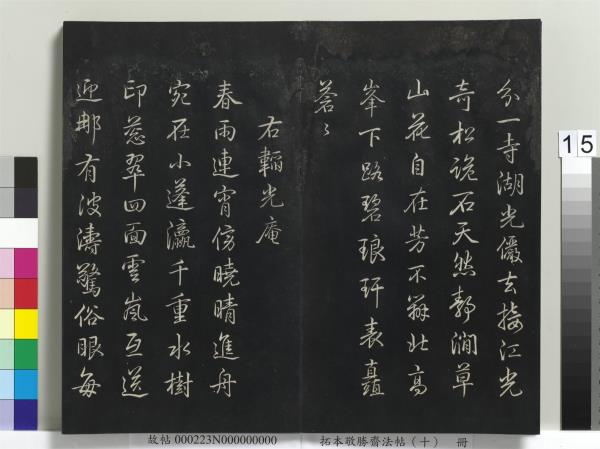 分一寺湖光儼去接江光
奇松詭石天然靜澗草
山花自在芳不辨北高
峯下路碧琅玕表矗
蒼〻
右韜光庵
春雨連宵傍曉晴進舟
宛在小蓬瀛千重水樹
印葱翠四面雲嵐互送
迎那有波濤驚俗眼每
15
故帖 000223N000000000 拓本敬勝齋法帖(十) 冊